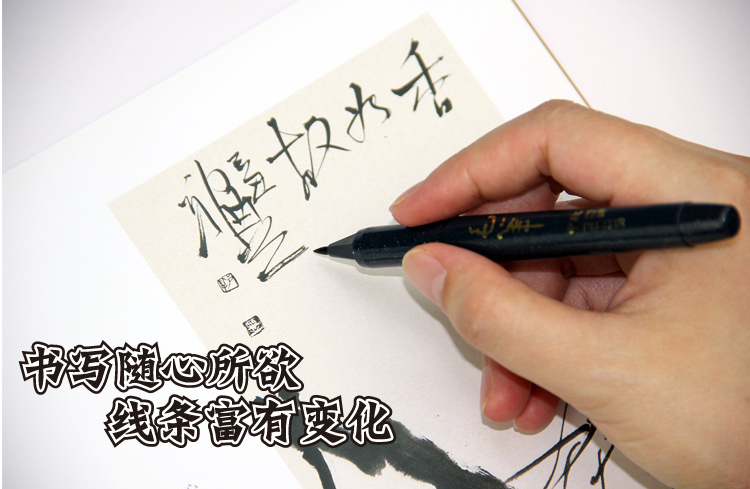 香如故
书写随心所欲
线条富有变化